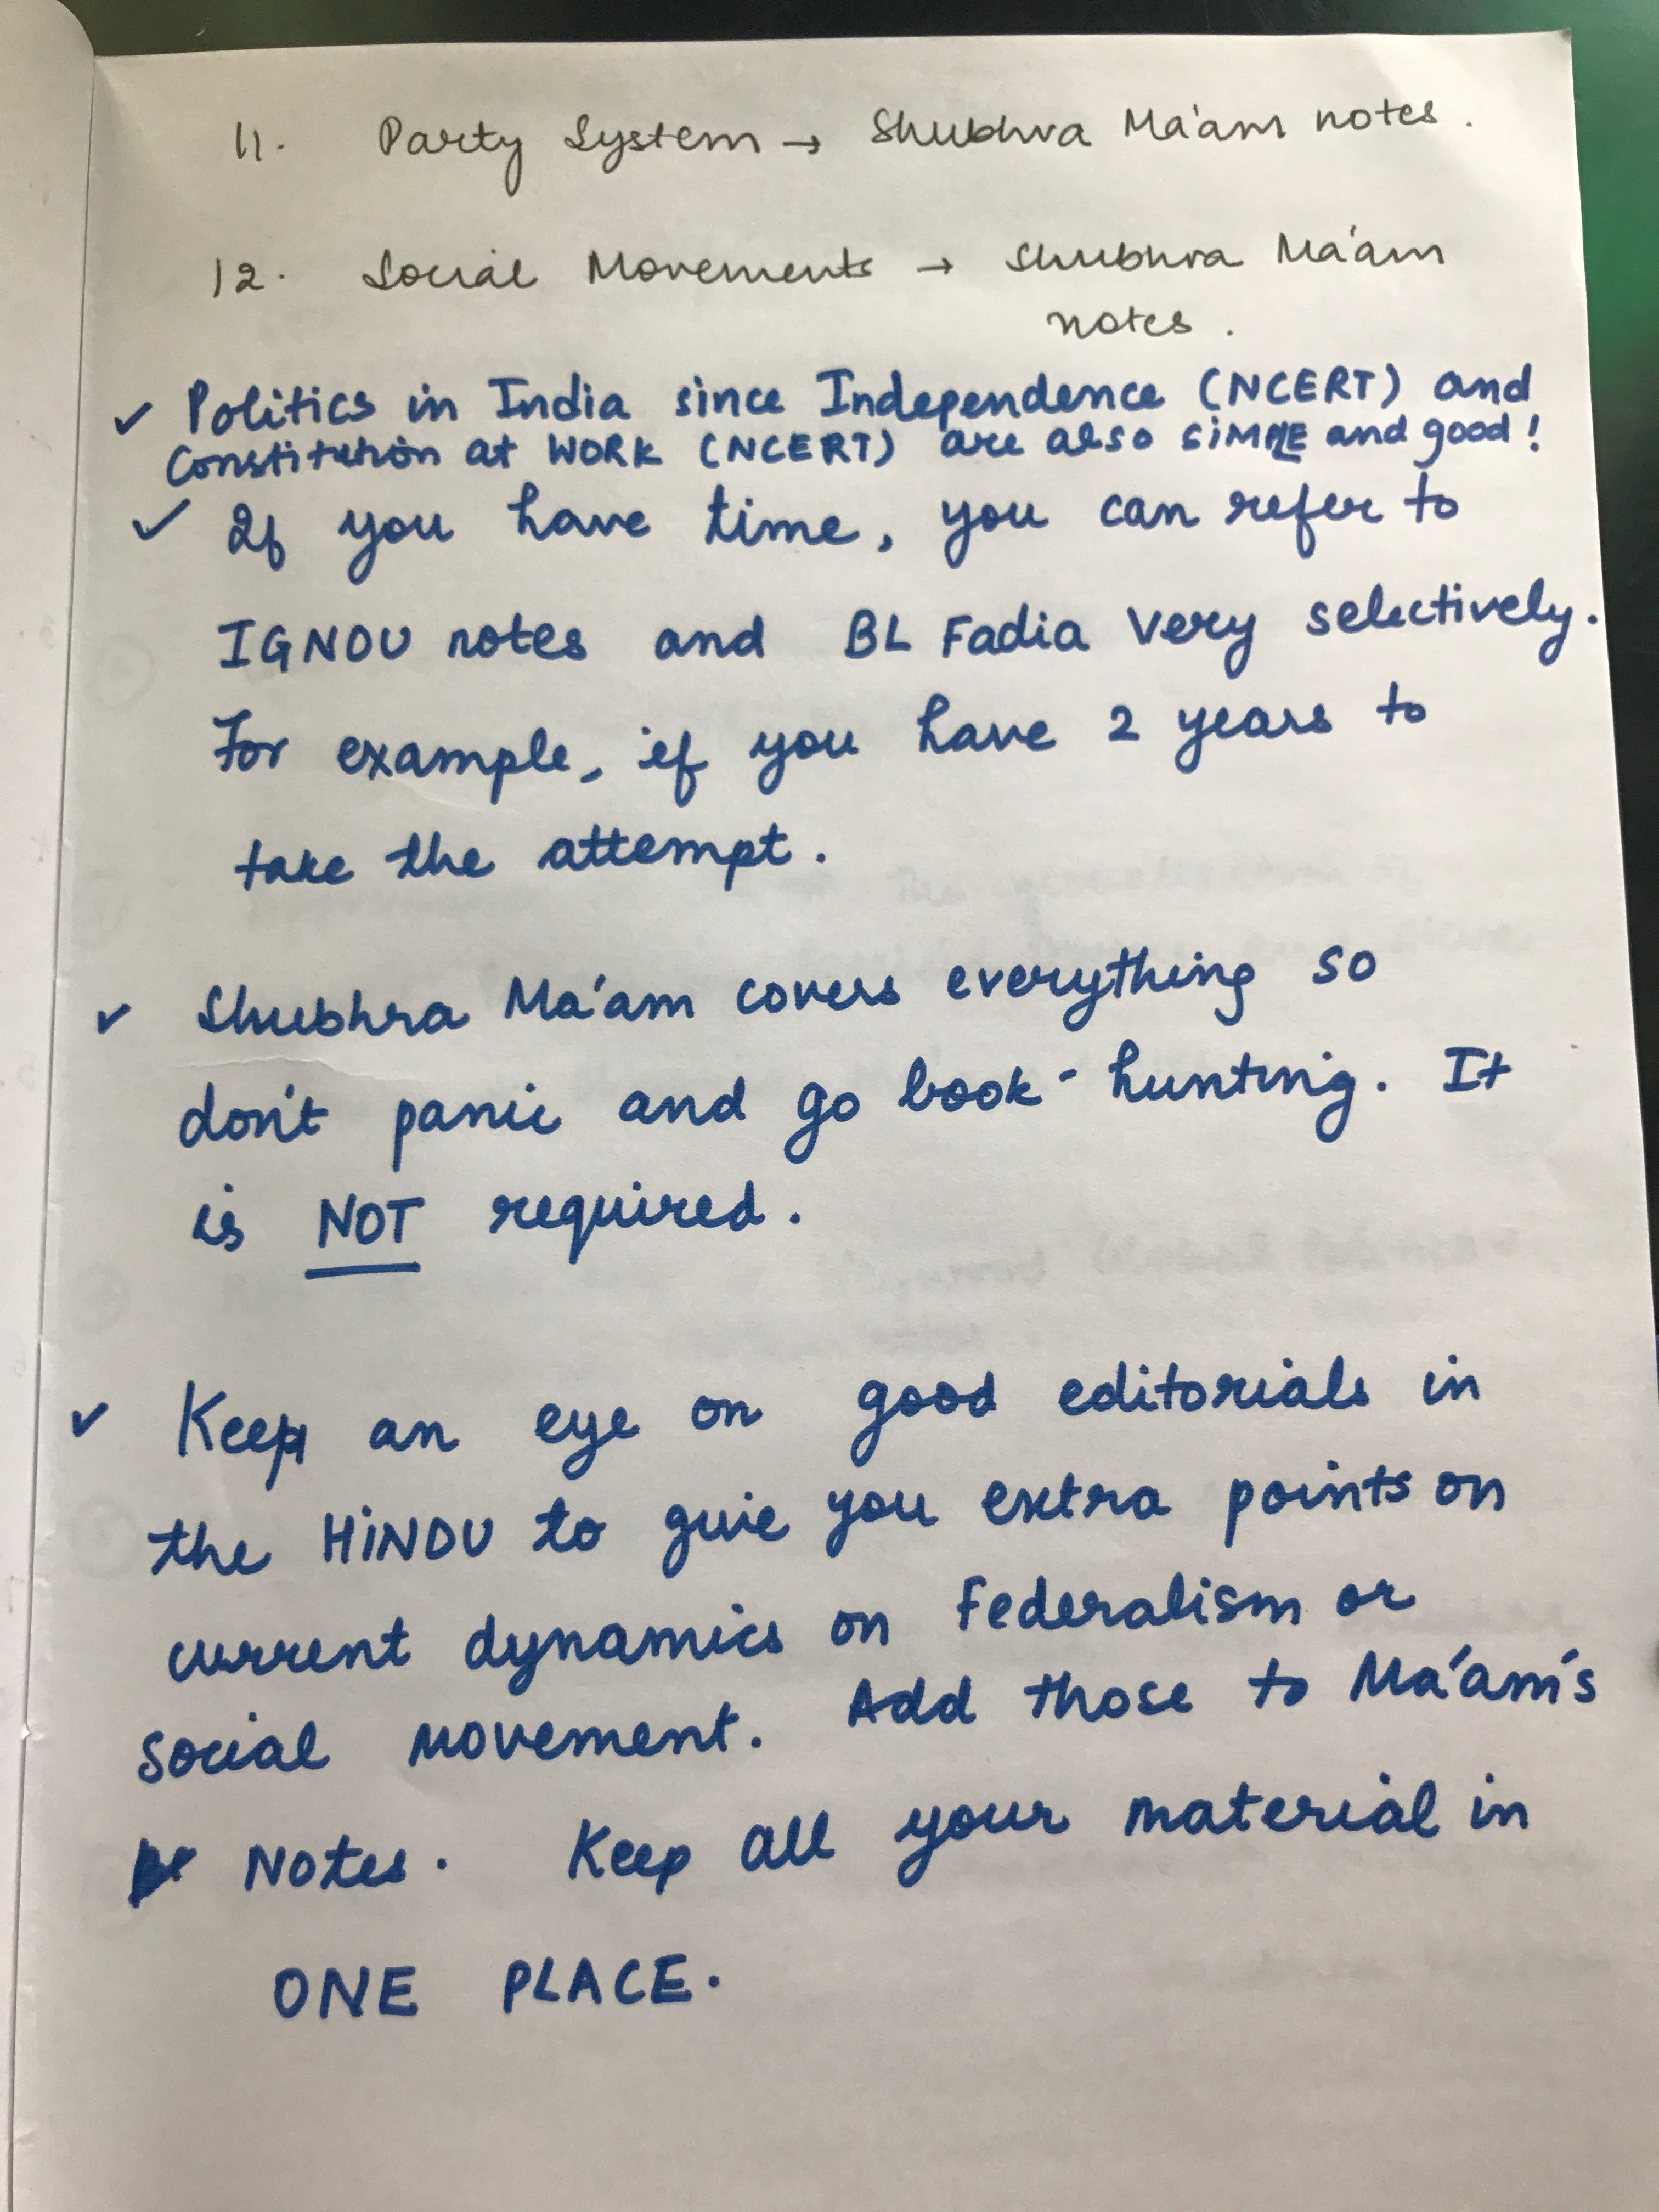 11. Party System → Shubhra Ma'am notes.
12. Social Movements → Shubhra Ma'am
notes.
✓ Politics in India since Independence (NCERT) and
Constitution at WORK (NCERT) are also SiMPLE and good!
✓ If you have time, you can refer to
IGNOU notes and BL Fadia very selectively.
For example, if you have 2 years to
take the attempt.
✓ Shubhra Ma'am covers everything so
don't panic and go book-hunting. It
is NOT required.
✓ Keep an eye on good editorials in
the HiNDU to give you extra points on
current dynamics on Federalism or
social movement. Add those to Ma'am's
Notes. Keep all your material in
ONE PLACE.